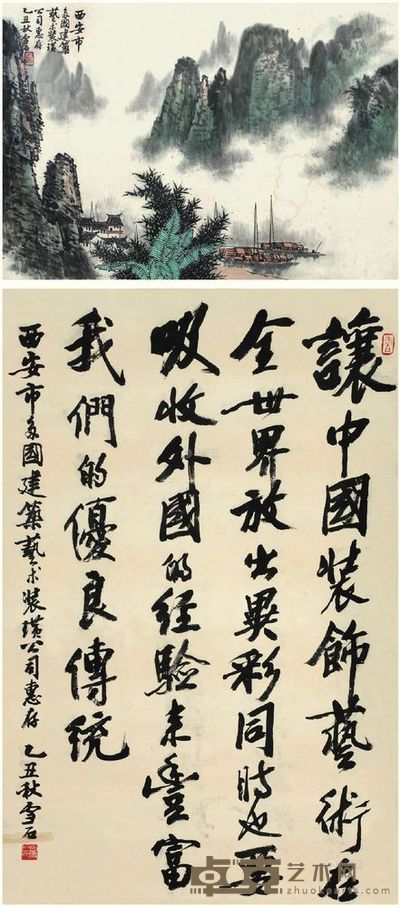 西安市
國建築
藝术装璜
公司惠存
乙丑秋雪石
讓中國装飾藝術在
全世界放出異彩同時也要
吸收外國的經驗来豐富
我們的優良傳統
西安市國建築藝术装璜公司惠存 乙丑秋雪石
卓克艺术网
zhuokearts.com